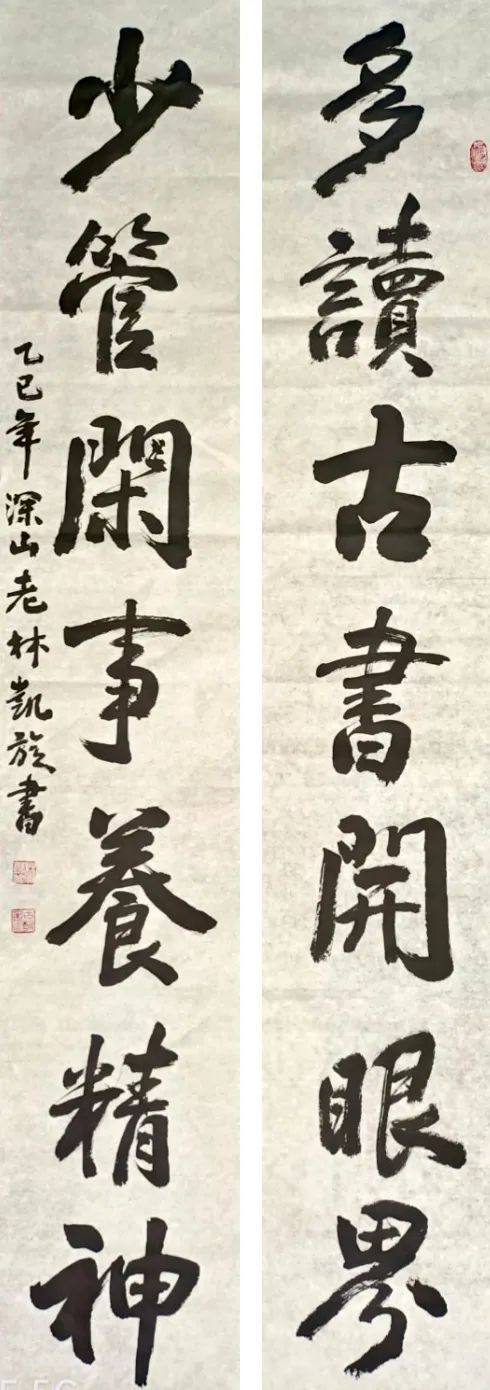 多讀古書開眼界
少管閑事養精神
乙巳年深山老林凱旋書